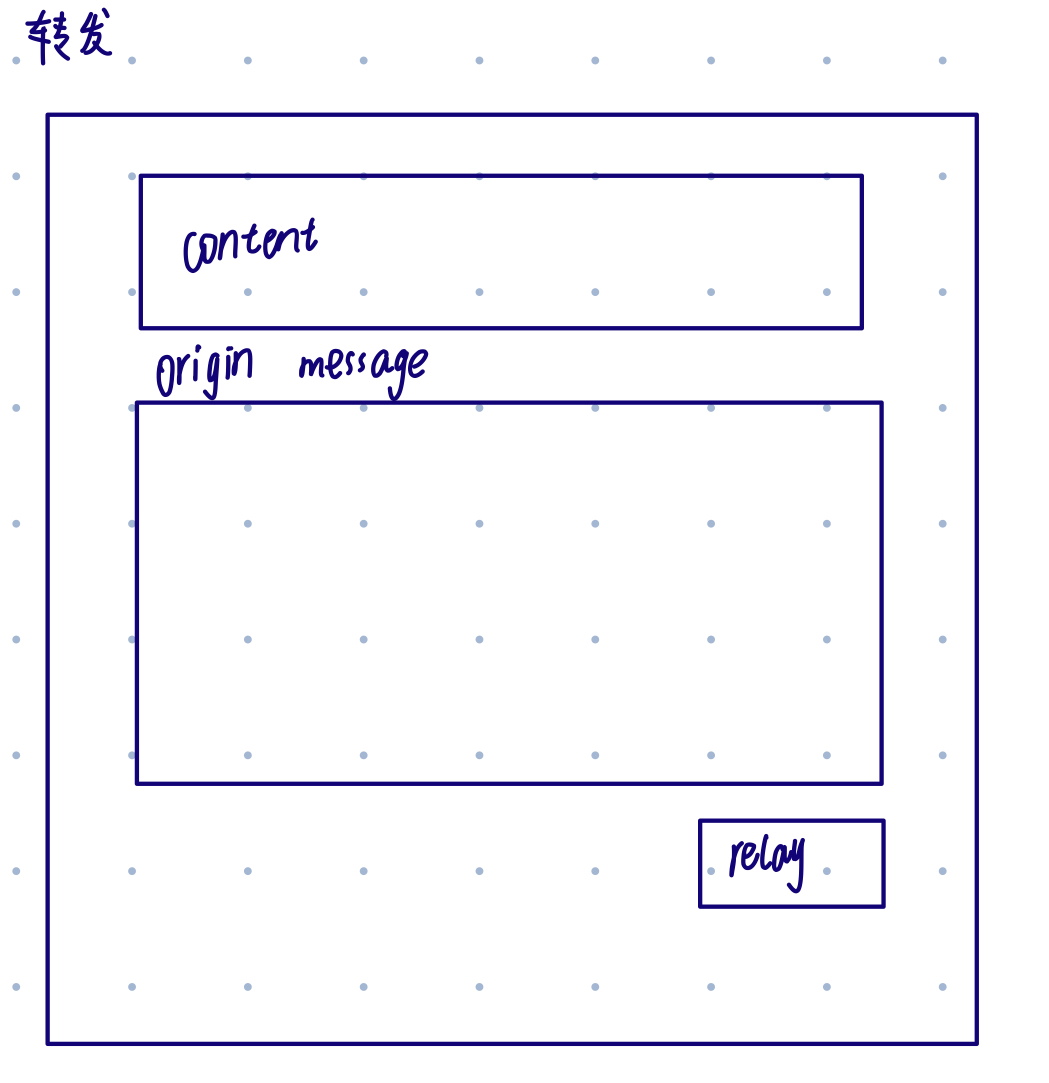 转发
content
origin message
relay